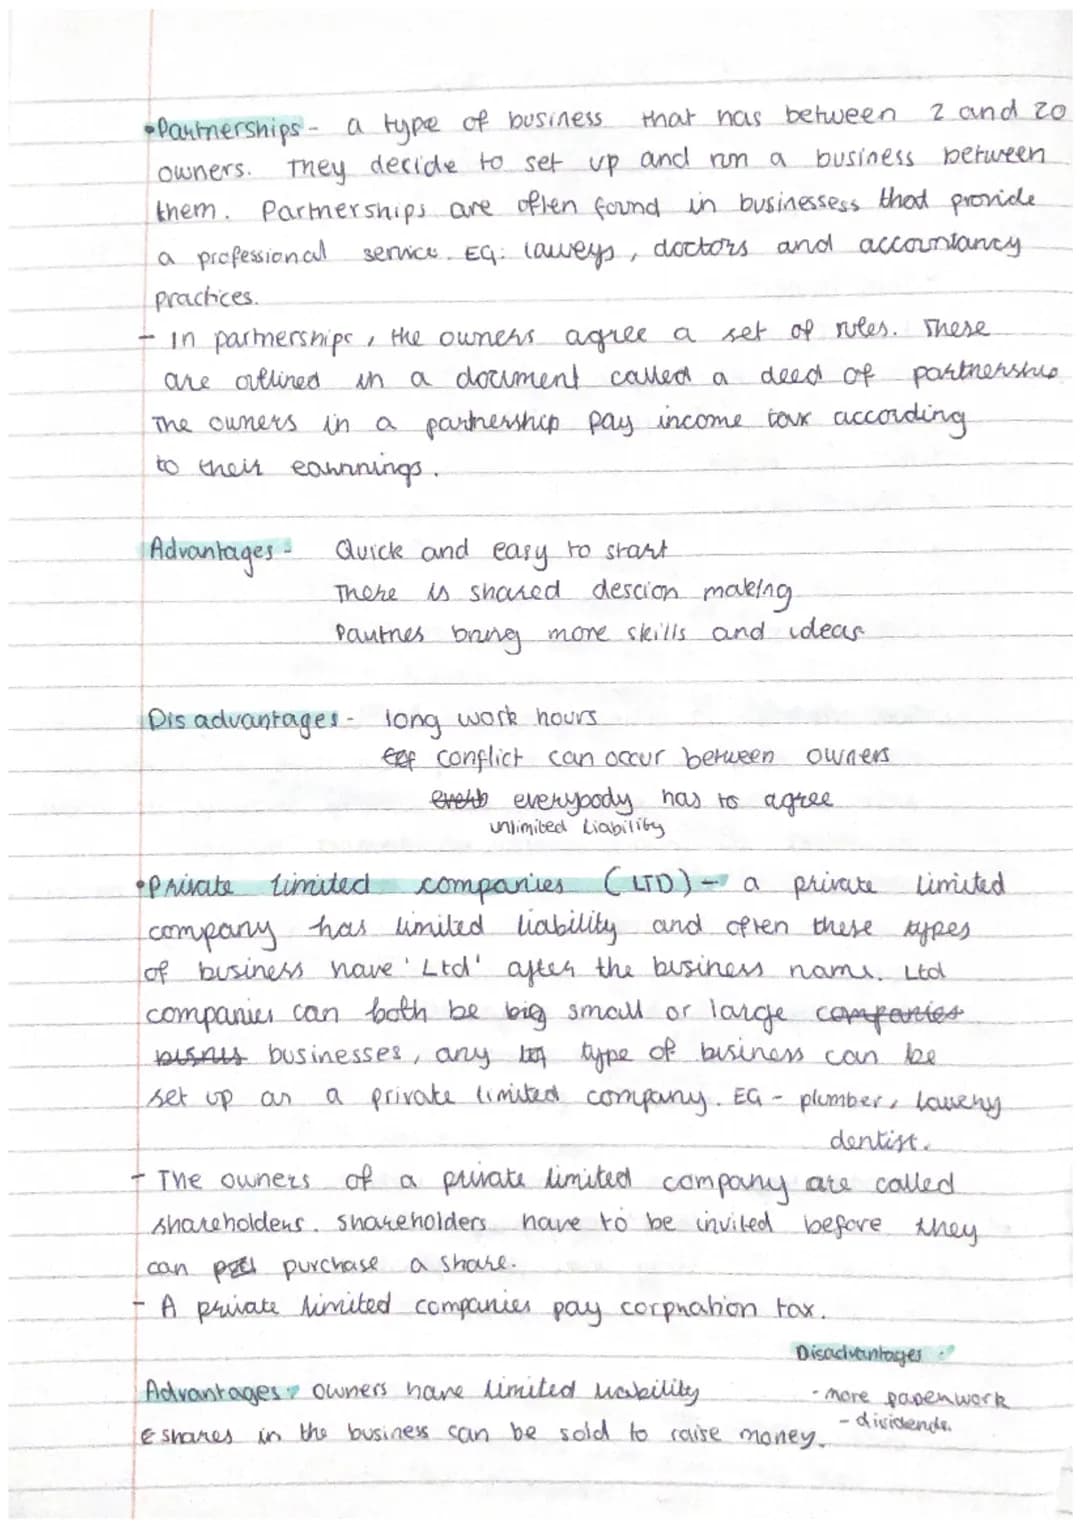 •Partnerships - a type of business that has between 2 and 20
owners. They decide to set up and run a business between
them. Partnerships are often found in businessess that provide
a professional service. EG: laweys, doctors and accountancy
practices.
- In partnerships, the owners agree a set of rules. These
are outlined in a document called a deed of partnership
The owners in a partnership pay income tax according
to their earnnings.
Advantages - Quick and easy to start
There is shared descion making
Pautnes bring more skills and ideas
Dis advantages - long work hours
conflict can occur between owners
everybody has to agree
unlimited liability
•Private limited companies (LTD) - a private limited
company has limited liability and often these types
of business have 'Ltd' after the business name. Ltd
companies can both be big small or large companies
busnis businesses, any type of business can be
set up as a private limited company. EG - plumber, laweny
dentist.
- The owners of a private limited company are called
shareholders. shareholders have to be invited before they
can purchase a share.
- A private limited companies pay corpration tax.
Disadvantages -
Advantages - owners have limited liability
- more paperwork
- dividends.
shares in the business can be sold to raise money.